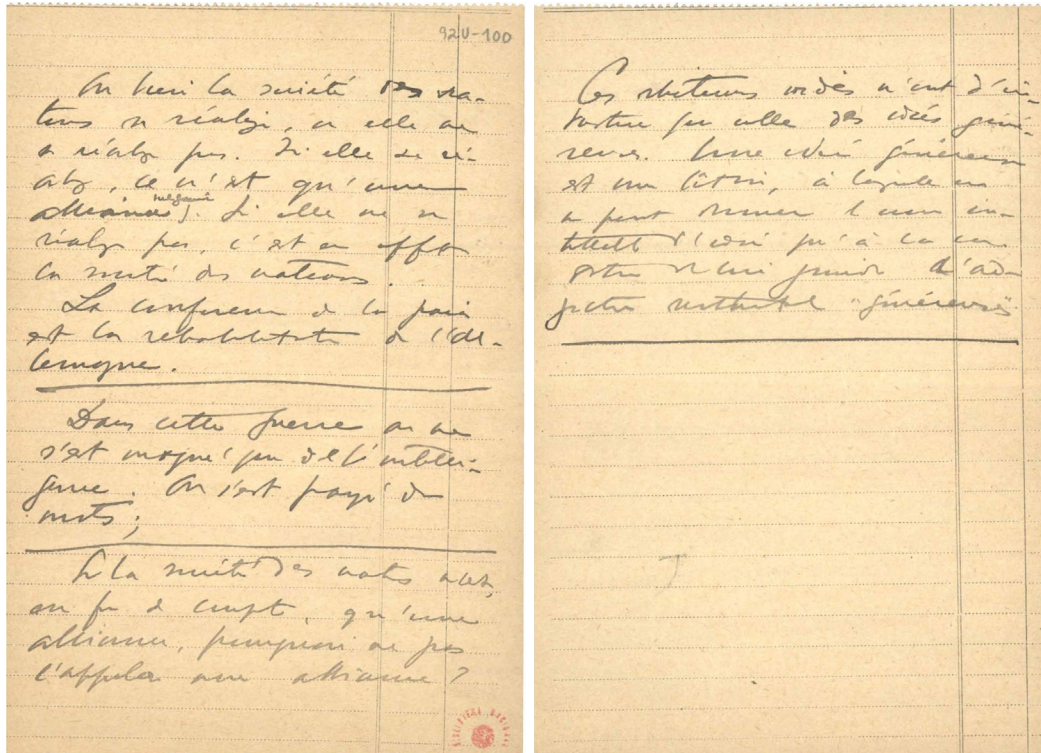 92U-100
Ou bien la société des na-
tions se réalise, ou elle ne
se réalise pas. Si elle se ré-
alise, ce n'est qu'une
alliance. Si elle ne se
réalise pas, c'est en effet
la société des nations.
La conférence de la paix
est la réhabilitation de l'Al-
lemagne.
Dans cette guerre on ne
s'est moqué que de l'intelli-
gence. On s'est payé de
mots;
Si la société des nations n'est,
en fin de compte, qu'une
alliance, pourquoi ne pas
l'appeler une alliance?
Ces rhéteurs vidés n'ont d'in-
que celle des idées géné-
reuses. Une idée généreuse
est une, à laquelle on
ne peut donner in-
tellectuel d'idée qu'à la con-
dition de lui joindre l'ad-
jectif "généreuse"